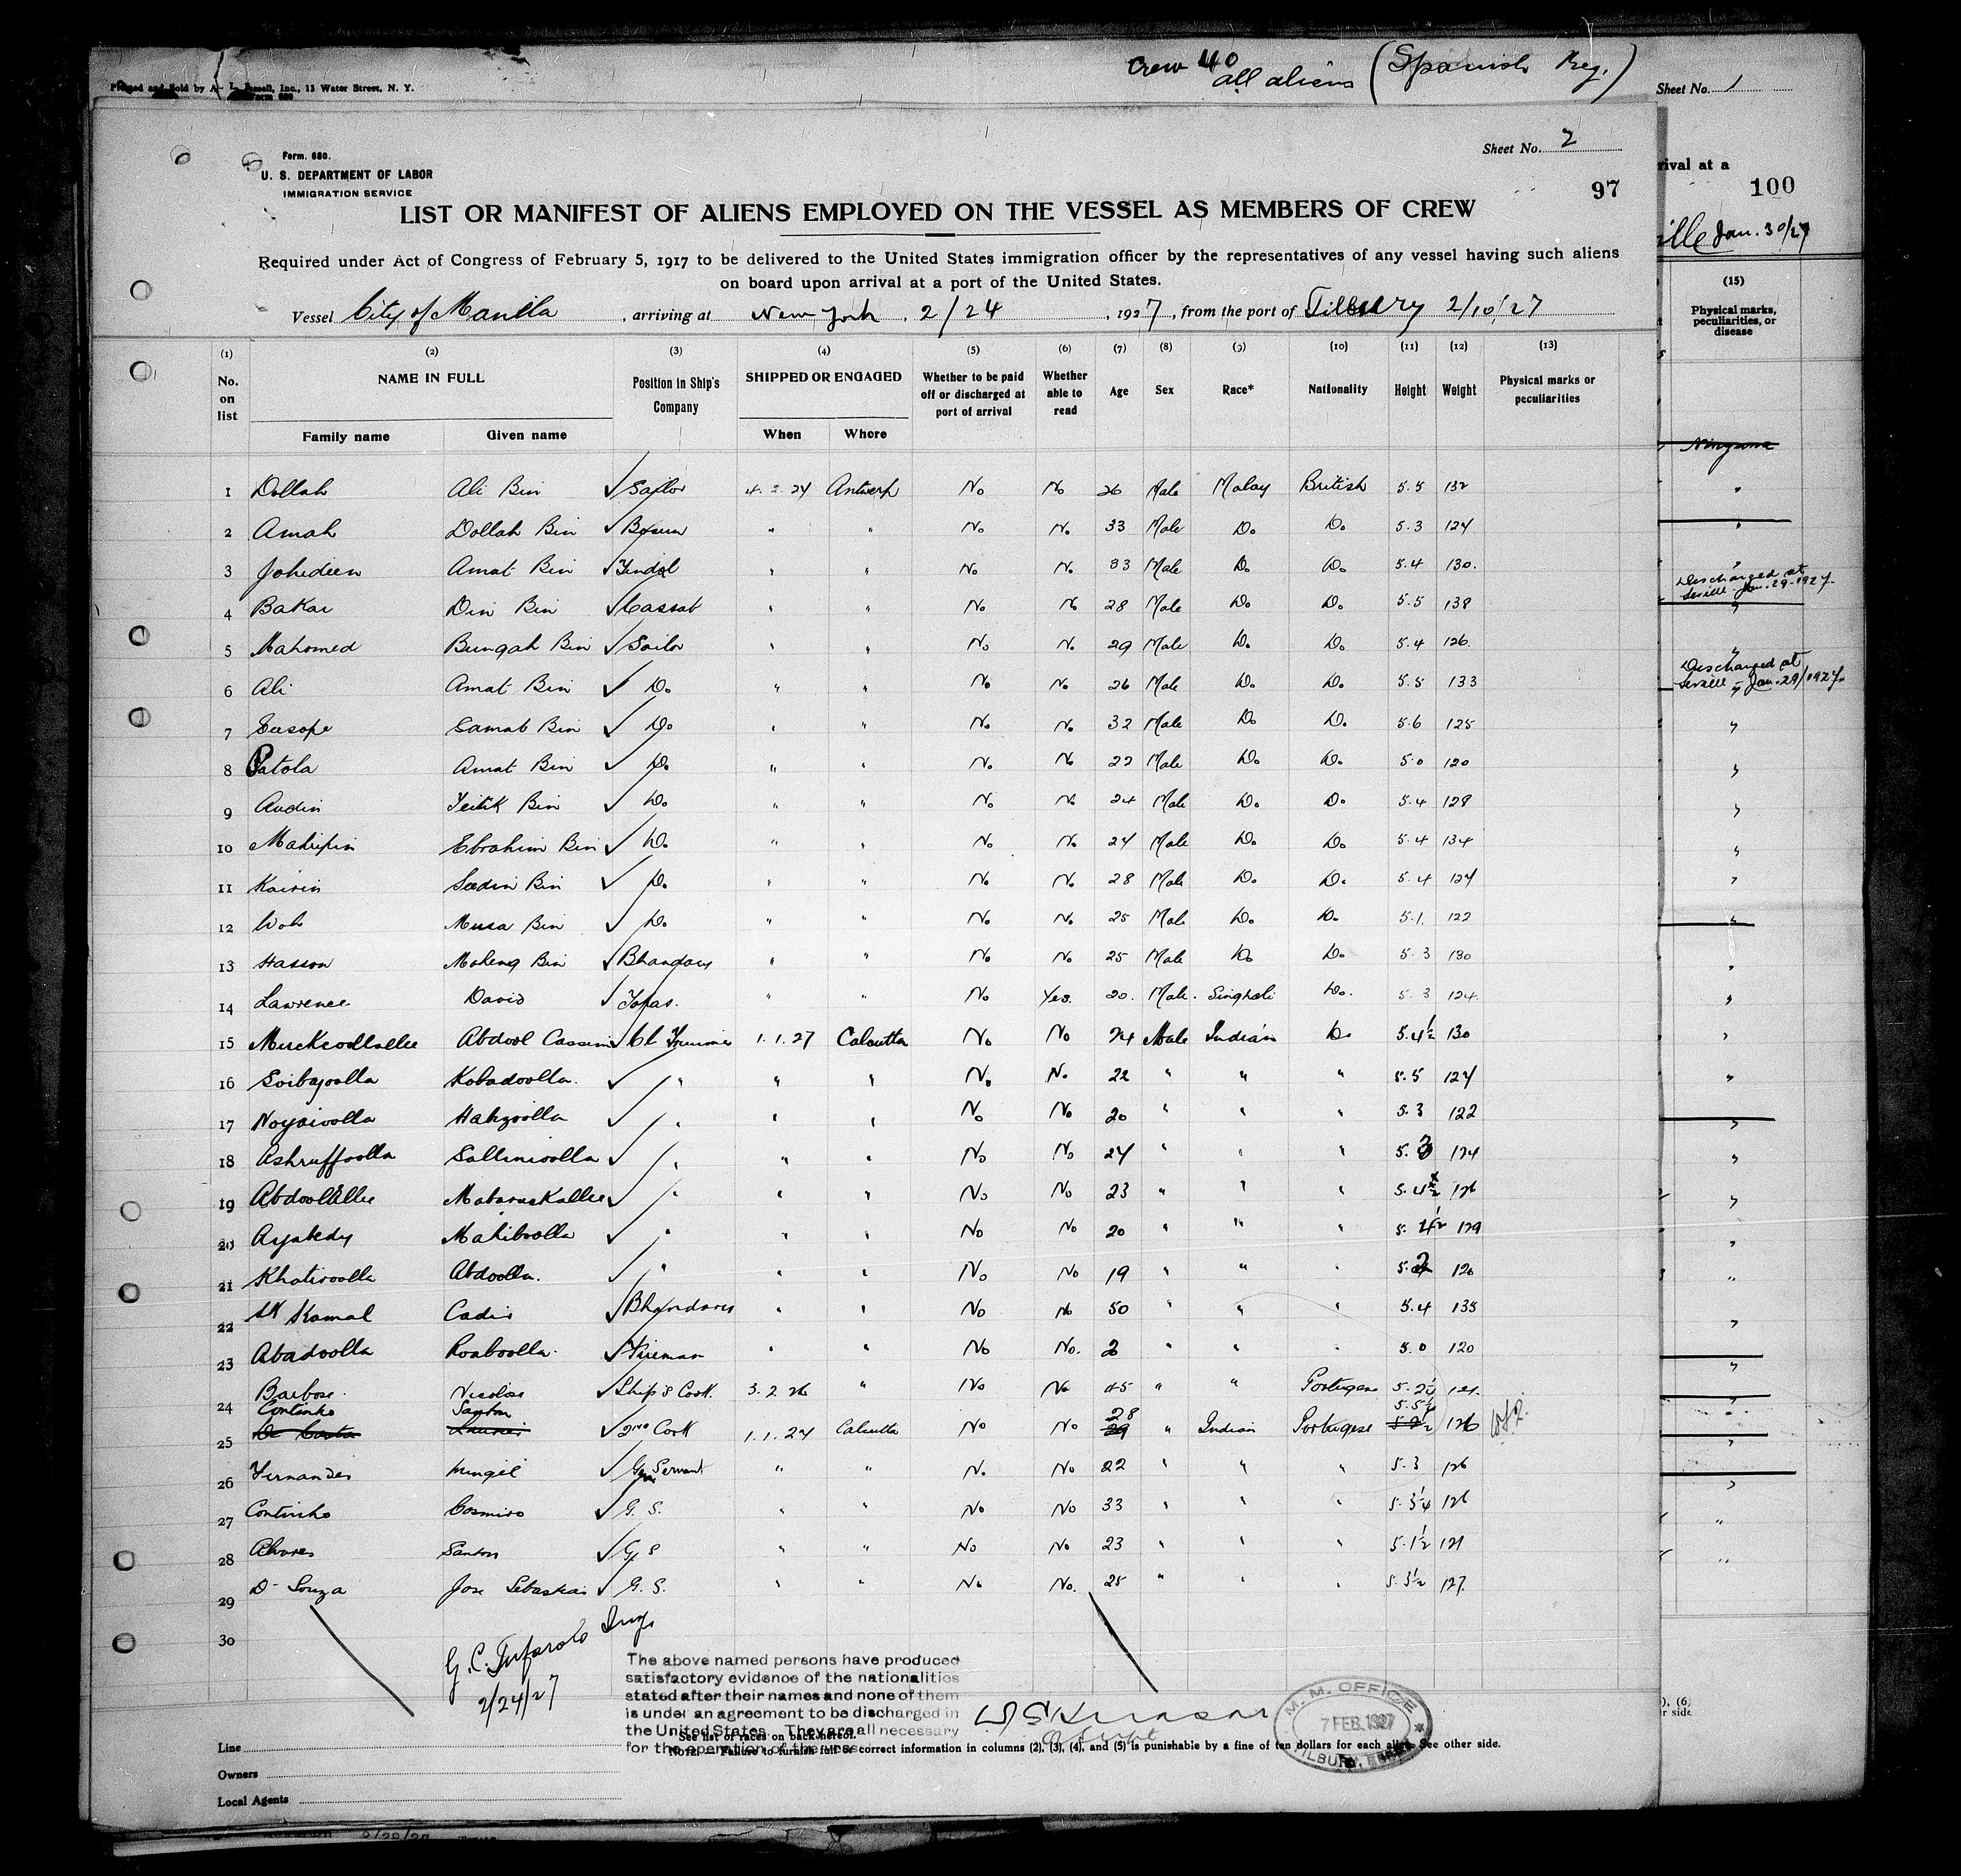 Crew 40
all aliens (Spanish Reg.)
Printed and Sold by A. L. Russell, Inc., 13 Water Street, N. Y.
Sheet No. 1
Form. 680.
U. S. DEPARTMENT OF LABOR
IMMIGRATION SERVICE
Sheet No. 2
97
rival at a
100
LIST OR MANIFEST OF ALIENS EMPLOYED ON THE VESSEL AS MEMBERS OF CREW
ille Jan. 30/27
Required under Act of Congress of February 5, 1917 to be delivered to the United States immigration officer by the representatives of any vessel having such aliens
on board upon arrival at a port of the United States.
Vessel City of Manilla, arriving at New York, 2/24, 1927, from the port of Tilbury 2/10/27
(1) (2) (3) (4) (5) (6) (7) (8) (9) (10) (11) (12) (13)
No. on list NAME IN FULL Position in Ship's Company SHIPPED OR ENGAGED Whether to be paid off or discharged at port of arrival Whether able to read Age Sex Race* Nationality Height Weight Physical marks or peculiarities
Family name Given name When Where
(15)
Physical marks, peculiarities, or disease
1 Dollah Ali Bin Sailor 4.2.24 Antwerp No No 26 Male Malay British 5.5 132
2 Amah Dollah Bin Bosun " " No No 33 Male Do Do 5.3 124
3 Johideen Amat Bin Tindal " " No No 33 Male Do Do 5.4 130.
4 Bakar Din Bin Cassab " " No No 28 Male Do Do 5.5 138
5 Mahomed Bungah Bin Sailor " " No No 29 Male Do Do 5.4 126.
6 Ali Amat Bin Do " " No No 26 Male Do Do 5.5 133
7 Eusope Samat Bin Do " " No No 32 Male Do Do 5.6 125
8 Patola Amat Bin Do " " No No 22 Male Do Do 5.0 120
9 Audin Teitik Bin Do " " No No 24 Male Do Do 5.4 128
10 Ebrahim Bin Do " " No No 24 Male Do Do 5.4 134
11 Kairin Seedin Bin Do " " No No 28 Male Do Do 5.4 124
12 Woh Musa Bin Do " " No No 25 Male Do Do 5.1 122
13 Hasson Moheng Bin Bhandary " " No No 25 Male Do Do 5.3 130
14 Lawrence David Topas. " " No Yes. 20. Male. Singhali Do. 5.3 124.
15 Abdool Cassim 1.1.27 Calcutta No No 24 Male Indian Do 5.4½ 130
16 Soibajoolla Kobadoolla. " " " No No 22 " " " 5.5 124
17 Noyaioolla Hahzoolla " " " No No 20 " " " 5.3 122
18 Ashruffoolla Sallimoolla " " " No No 24 " " " 5.3 124
19 AbdoolEllee Mabaruskallee " " " No No 23 " " " 5.4½ 126
20 Ayubedy Mahiboolla " " " No No 20 " " " 5.4½ 129
21 Khatiroolla Abdoolla. " " " No No 19 " " " 5.2 120
22 Sk Komal Cadir Bhandary " " No No 50 " " " 5.4 135
23 Abadoolla Roaboolla. Fireman " " No No. 2 " " " 5.0 120
24 Barbose. Nicolose Ship's Cook. 3.2.26 " No No 45 " " Portugese 5.2½ 121.
Continho Santon 28 5.5½
25 De Costa 2nd Cook 1.1.27 Calcutta No No 29 " Indian Portugese 5.2½ 126
26 Fernandes Mingel Gen Servant " " No No 22 " " " 5.3 126
27 Continho Cosmiro G. S. " " No No 33 " " " 5.3¼ 126
28 Alvares Santon G S " " No No 23 " " " 5.1½ 121
29 D-Souza Jose Sebastian G. S. " " No No. 25 " " " 5.3½ 127.
30
Discharged at
Seville Jan. 29-1927.
Discharged at
Seville - Jan. 29/1927.
2/24/27
The above named persons have produced
satisfactory evidence of the nationalities
stated after their names and none of them
is under an agreement to be discharged in
the United States. They are all necessary
for the operation of the vessel
M. M. OFFICE
7 FEB. 1927
TILBURY, ESSEX
See list of races on back hereof.
NOTE. Failure to furnish full or correct information in columns (2), (3), (4), and (5) is punishable by a fine of ten dollars for each alien. See other side.
Line
Owners
Local Agents